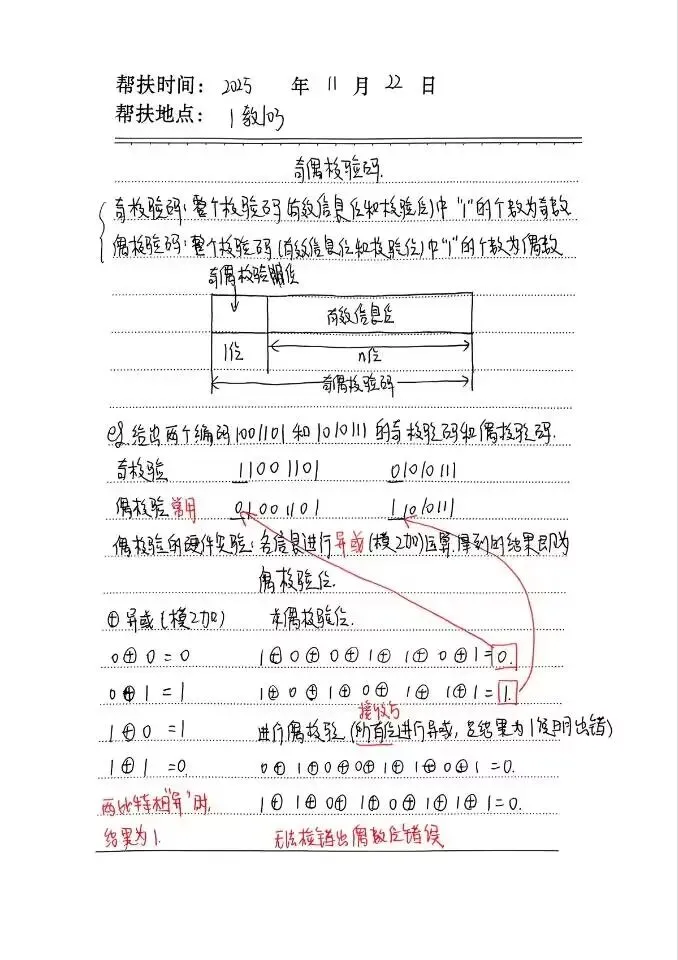 帮扶时间： 2025 年 11 月 22 日
帮扶地点： 1教103
奇偶校验码.
奇校验码：整个校验码(有效信息位和校验位)中"1"的个数为奇数
偶校验码：整个校验码(有效信息位和校验位)中"1"的个数为偶数
奇偶校验位
有效信息位
1位 n位
奇偶校验码
eg.给出两个编码1001101和1010111的奇校验码和偶校验码.
奇校验 11001101 01010111
偶校验 常用 01001101 11010111
偶校验的硬件实验：各信息进行异或(模2加)运算,得到的结果即为
偶校验位.
⊕异或(模2加) 求偶校验位.
0⊕0=0 1⊕0⊕0⊕1⊕1⊕0⊕1=0.
0⊕1=1 1⊕0⊕1⊕0⊕1⊕1⊕1=1.
接收与
1⊕0=1 进行偶校验(所有位进行异或,若结果为1说明出错)
1⊕1=0. 0⊕1⊕0⊕0⊕1⊕1⊕0⊕1=0.
两比特相"异"时, 1⊕1⊕0⊕1⊕0⊕1⊕1⊕1=0.
结果为1. 无法检错出偶数位错误